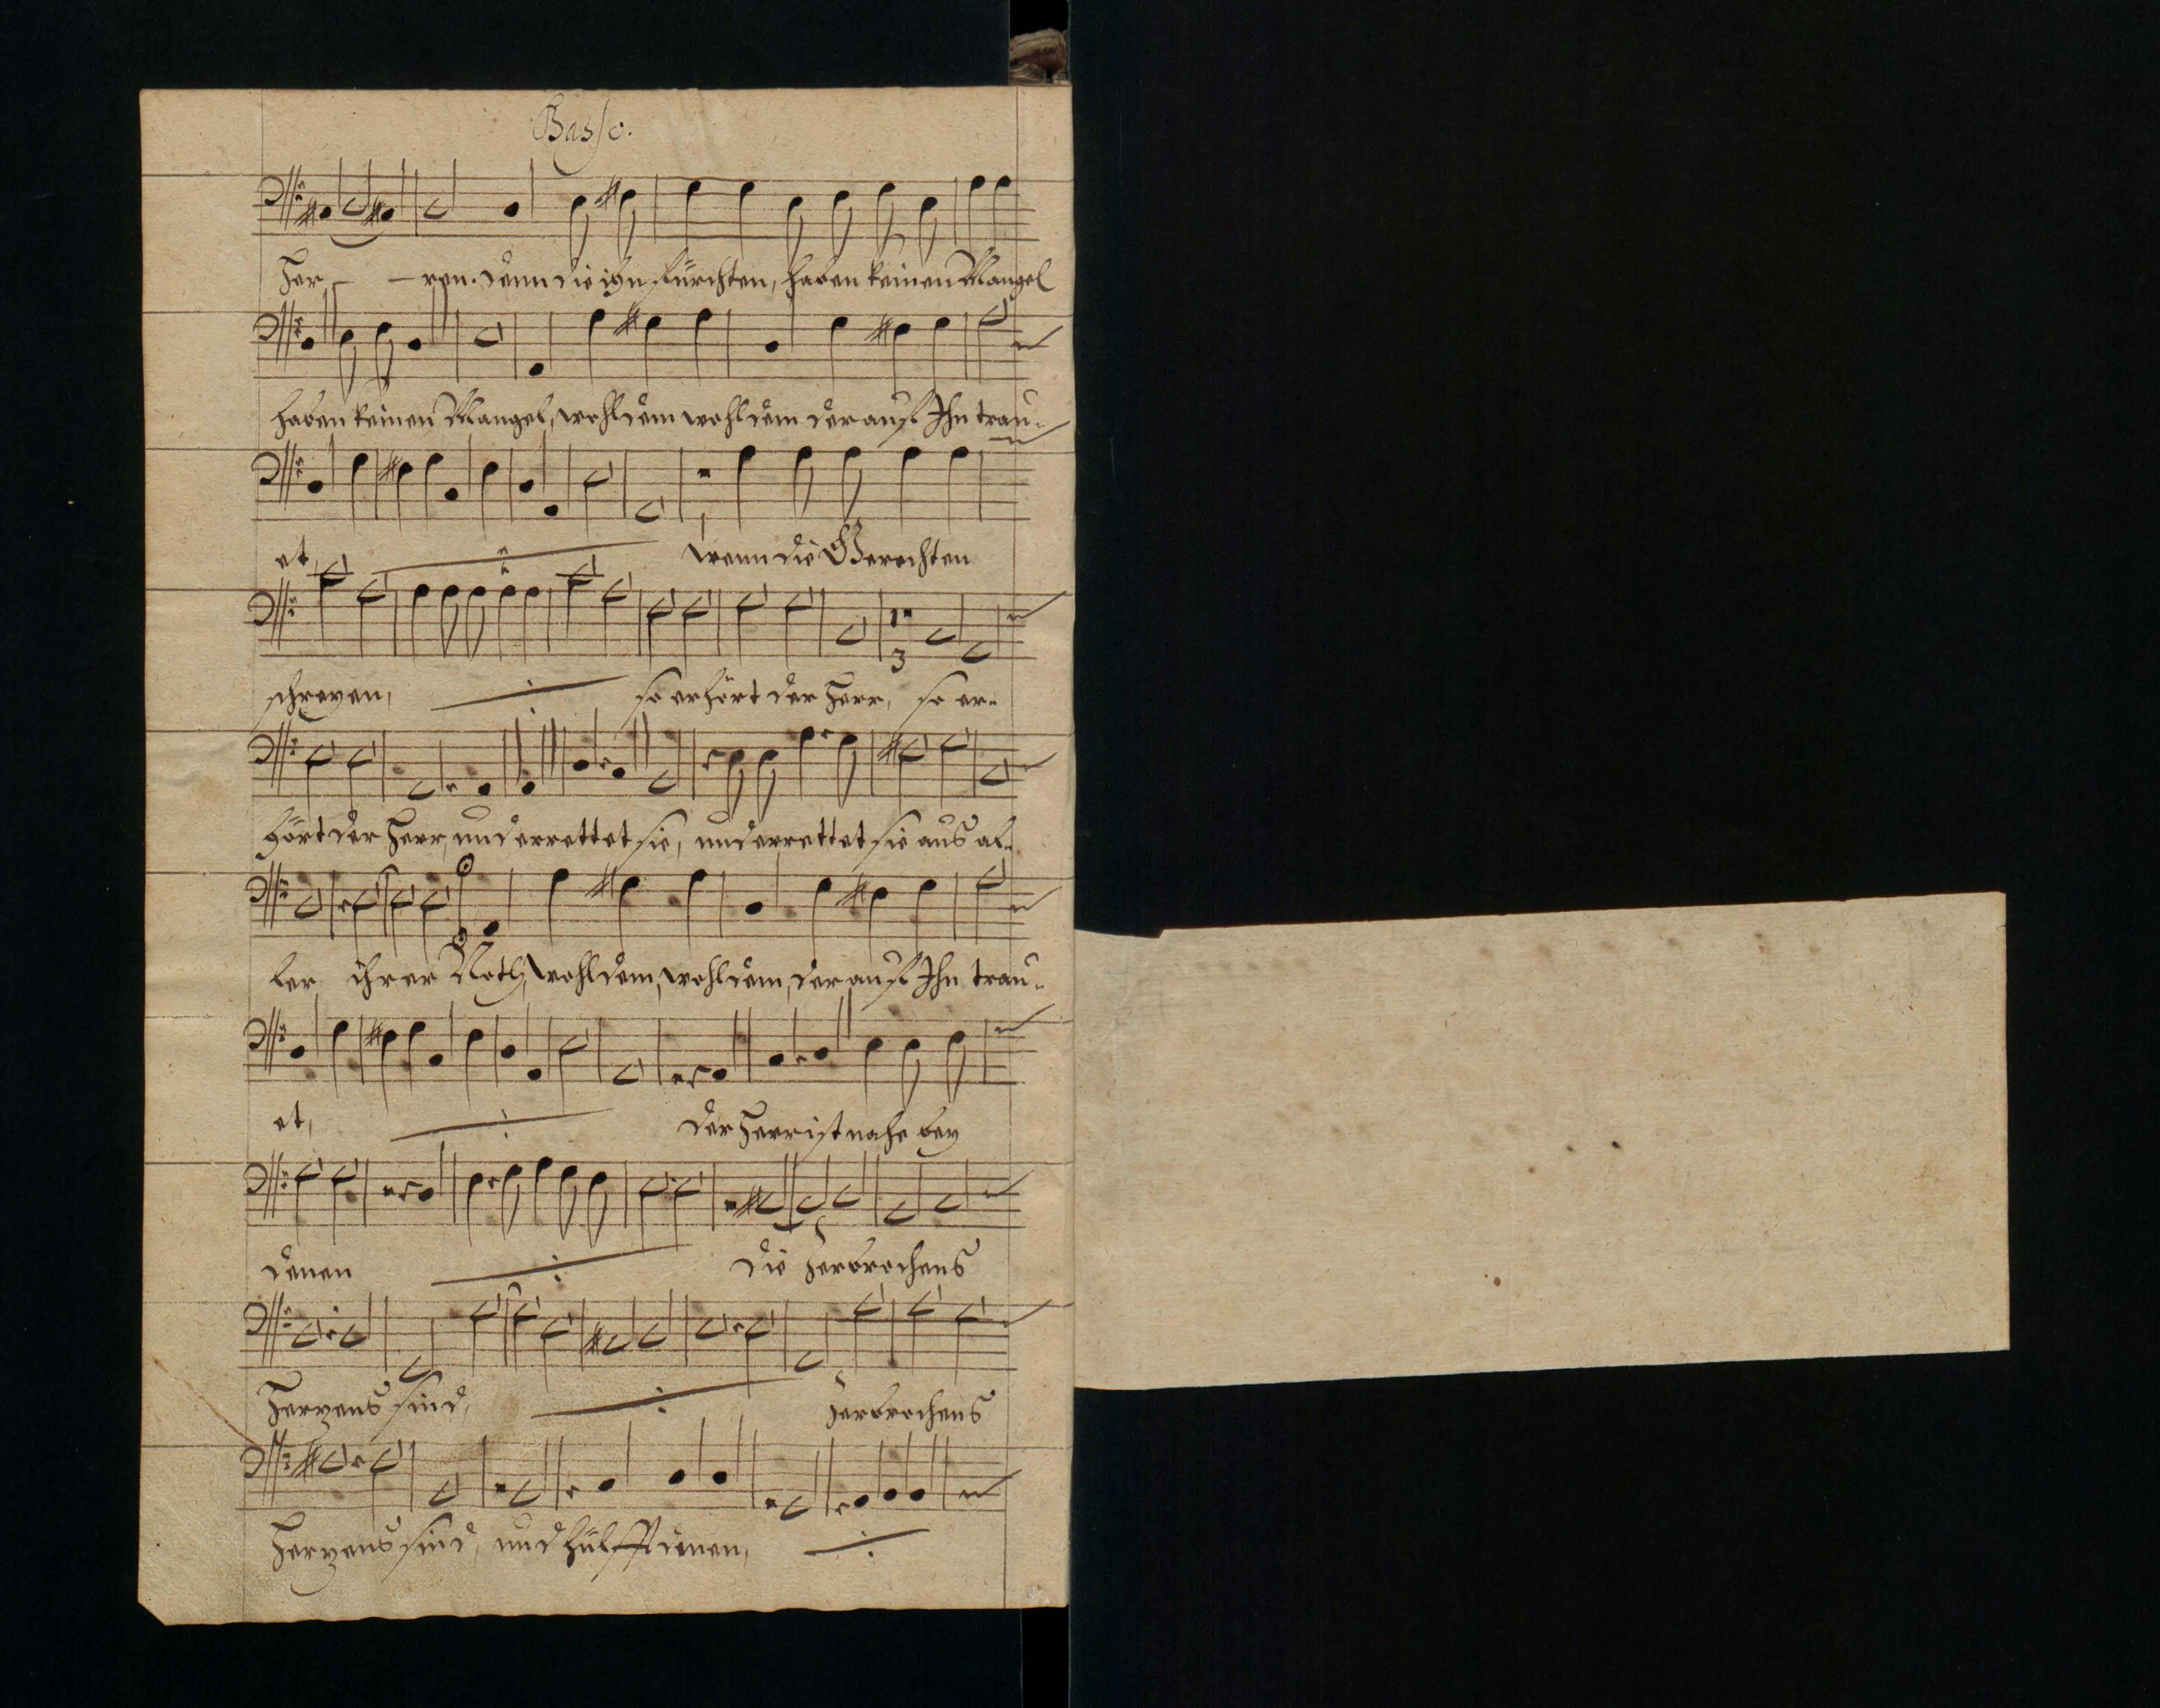 Basso.
Her - ren. denn die ihn fürchten, haben keinen Mangel
haben keinen Mangel, wohl dem wohl dem der auf Ihn trau-
et, wenn die Gerechten
schreyen, so erhört der Herr, so er-
hört der Herr, und errettet sie, und errettet sie aus al-
ler ihrer Noth, wohl dem, wohl dem, der auf Ihn trau-
et, der Herr ist nahe bey
denen die zerbrochens
Herzens sind, zerbrochens
Herzens sind, und hülfft denen,